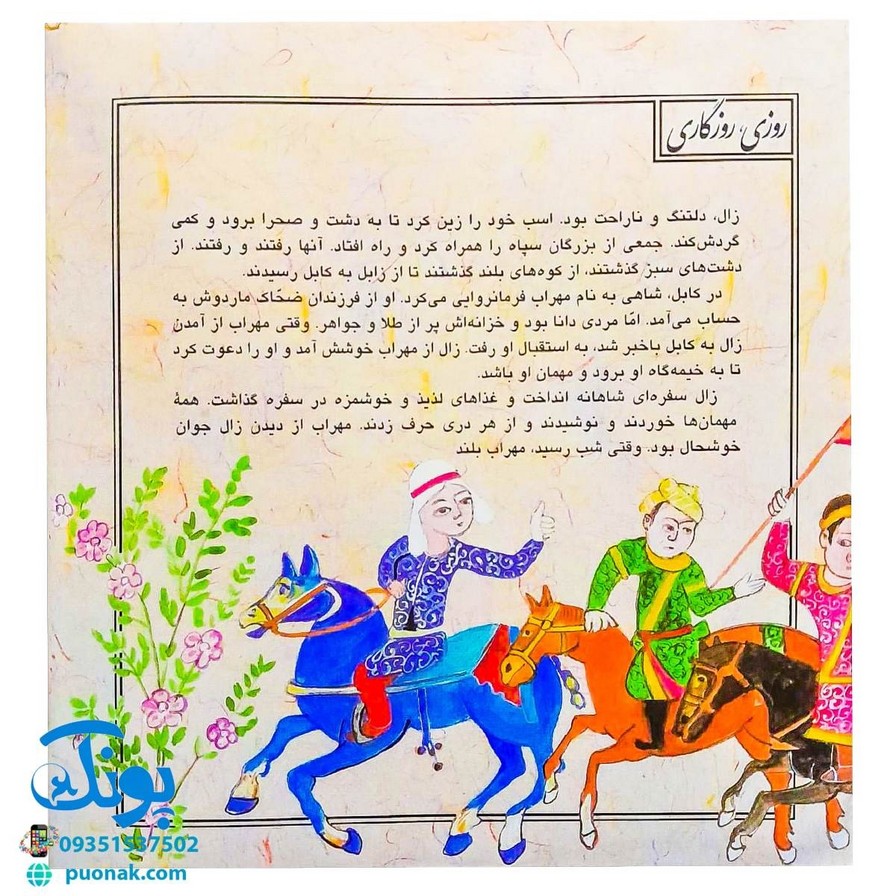 روزی، روزگاری
زال، دلتنگ و ناراحت بود. اسب خود را زین کرد تا به دشت و صحرا برود و کمی
گردش‌کند. جمعی از بزرگان سپاه را همراه کرد و راه افتاد. آنها رفتند و رفتند. از
دشت‌های سبز گذشتند، از کوه‌های بلند گذشتند تا از زابل به کابل رسیدند.
در کابل، شاهی به نام مهراب فرمانروایی می‌کرد. او از فرزندان ضحّاک ماردوش به
حساب می‌آمد. امّا مردی دانا بود و خزانه‌اش پر از طلا و جواهر. وقتی مهراب از آمدن
زال به کابل باخبر شد، به استقبال او رفت. زال از مهراب خوشش آمد و او را دعوت کرد
تا به خیمه‌گاه او برود و مهمان او باشد.
زال سفره‌ای شاهانه انداخت و غذاهای لذیذ و خوشمزه در سفره گذاشت. همهٔ
مهمان‌ها خوردند و نوشیدند و از هر دری حرف زدند. مهراب از دیدن زال جوان
خوشحال بود. وقتی شب رسید، مهراب بلند
پونک
09351537502
puonak.com